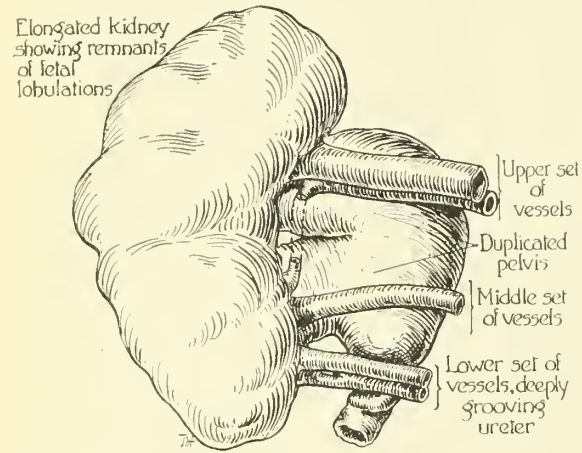 Elongated kidney
showing remnants
of fetal
lobulations
Upper set
of
vessels
Duplicated
pelvis
Middle set
of vessels
Lower set of
vessels, deeply
grooving
ureter